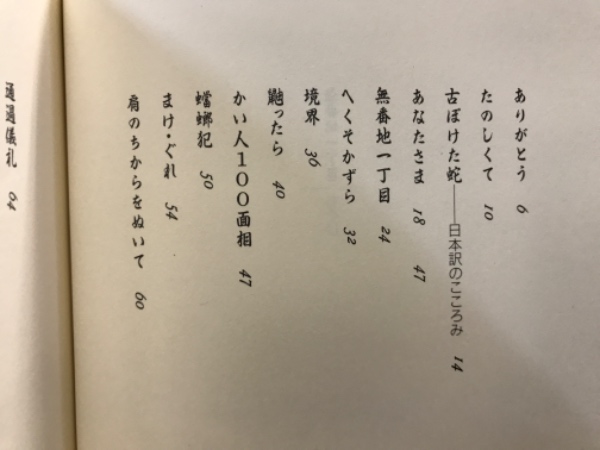 ありがとう 6
たのしくて 10
古ぼけた蛇――日本訳のこころみ 14
あなたさま 18 47
無番地一丁目 24
へくそかずら 32
境界 36
鼬ったら 40
かい人100面相 47
蟷螂犯 50
まけ・ぐれ 54
肩のちからをぬいて 60
通過儀礼 64